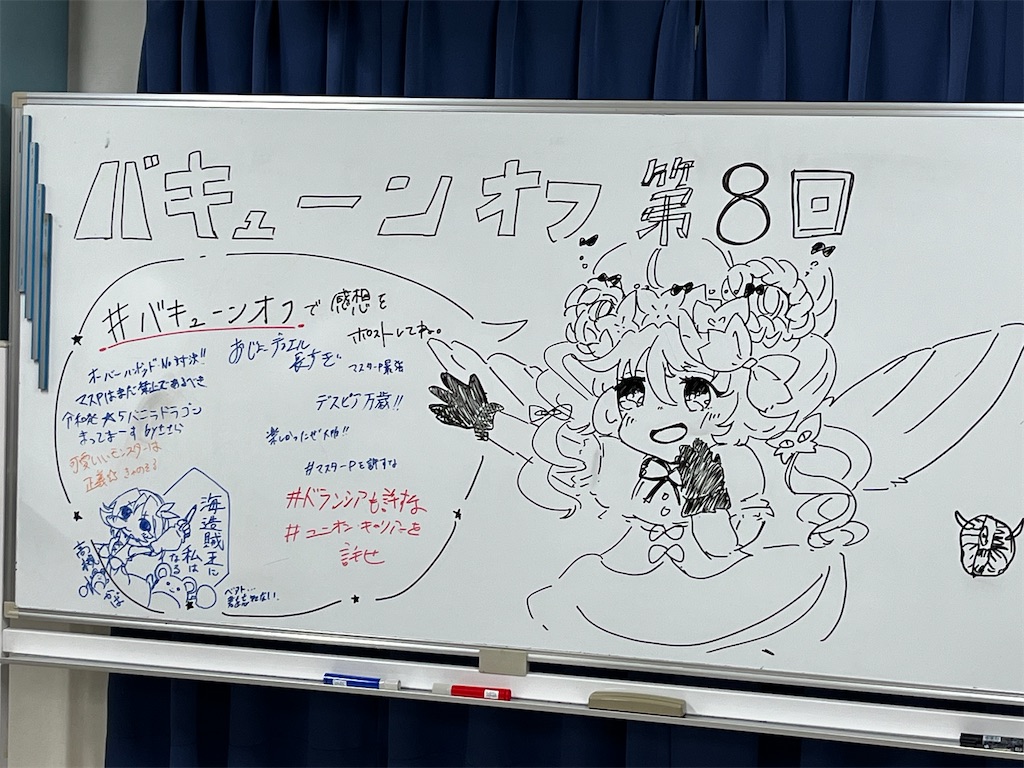 バキューンオフ 第8回
#バキューンオフで感想を
ポストしてね。
オーバーハンドレッドNo.対決!!
マスPはまだ禁止であるべき
令和発★5バニラドラゴン
まってまーす byささら
可愛いいモンスターは
正義
あじーデュエル
長すぎ
マスターP最強
デスピア万歳!!
楽しかったぜ
#マスターPを許すな
#バランシアも許すな
#ユニオンキャリアーを
許せ
海造賊王に
私は
なる
高橋